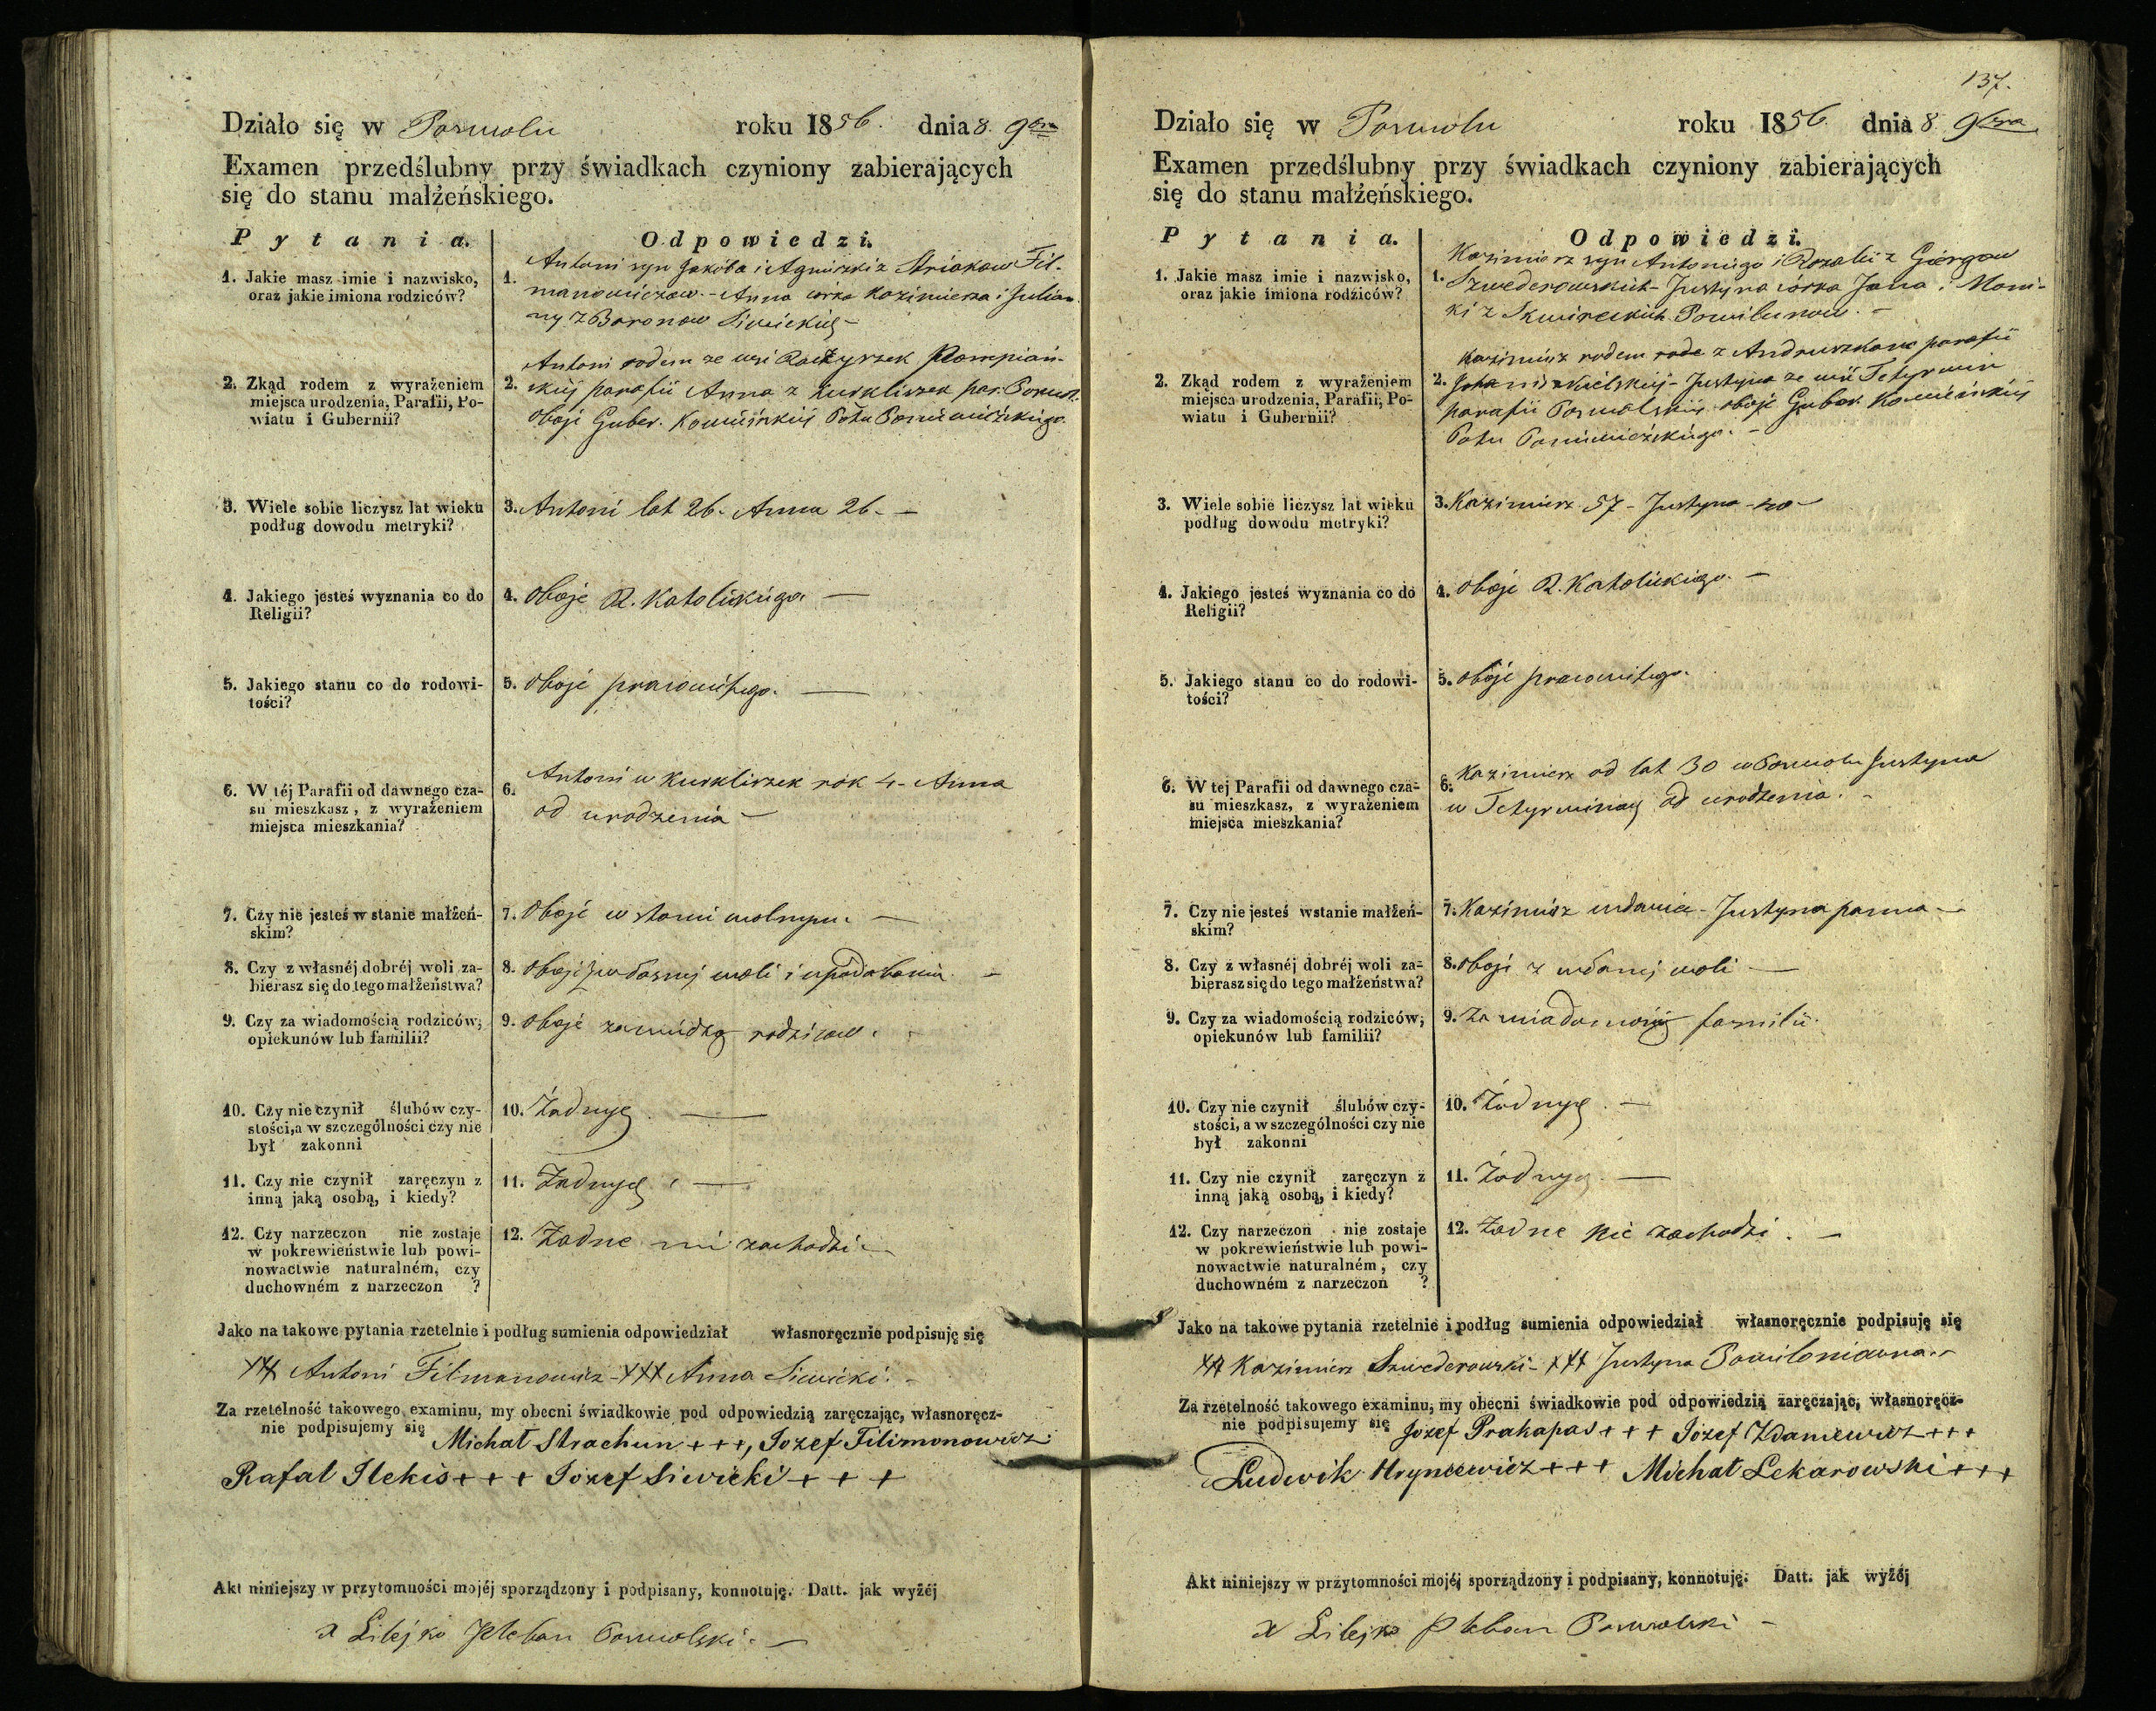 Działo się w Poswolu roku 1856. dnia 8. 9bra
Examen przedślubny przy świadkach czyniony zabierających
się do stanu małżeńskiego.
Pytania. Odpowiedzi.
1. Jakie masz imie i nazwisko,
oraz jakie imiona rodziców?
1. Antoni syn Jakóba i Agnieszki z Striokow Fil-
manowiczow. - Anna córka Kazimierza i Julian-
ny z Baronow Siwickich -
2. Zkąd rodem z wyrażeniem
miejsca urodzenia, Parafii, Po-
wiatu i Gubernii?
2. Antoni rodem ze wsi Pompiań-
skiej parafii Anna z Kurkliszek par. Poswol.
oboje Guber. Kowieńskiej Pottu Poniewieżskiego.
3. Wiele sobie liczysz lat wieku
podług dowodu metryki?
3. Antoni lat 26. Anna 26. -
4. Jakiego jesteś wyznania co do
Religii?
4. Oboje R. Katolickiego -
5. Jakiego stanu co do rodowi-
tości?
5. Oboje prawowitego. -
6. W téj Parafii od dawnego cza-
su mieszkasz, z wyrażeniem
miejsca mieszkania?
6. Antoni w Kurkliszek rok 4 - Anna
od urodzenia -
7. Czy nie jesteś w stanie małżeń-
skim?
7. Oboje w stanie wolnym. -
8. Czy z własnéj dobréj woli za-
bierasz się do tego małżeństwa?
8. Oboje z własnej woli i upodobania. -
9. Czy za wiadomością rodziców,
opiekunów lub familii?
9. Oboje za wiedzą rodzicow.
10. Czy nie czynił ślubów czy-
stości, a w szczególności czy nie
był zakonni
10. Żadnych. -
11. Czy nie czynił zaręczyn z
inną jaką osobą, i kiedy?
11. Żadnych. -
12. Czy narzeczon nie zostaje
w pokrewieństwie lub powi-
nowactwie naturalném, czy
duchowném z narzeczon ?
12. Żadne nie zachodzi. -
Jako na takowe pytania rzetelnie i podług sumienia odpowiedział własnoręcznie podpisuję się
+++ Antoni Filmanowicz - +++ Anna Siwicki. -
Za rzetelność takowego examinu, my obecni świadkowie pod odpowiedzią zaręczając, własnoręcz-
nie podpisujemy się Michał Strachun +++, Jozef Filimonowicz
Rafał Ilekis +++ Jozef Siwicki +++
Akt niniejszy w przytomności mojéj sporządzony i podpisany, konnotuję. Datt. jak wyżéj
X Lilejko Pleban Poswolski. -
137.
Działo się w Poswolu roku 1856. dnia 8 9bra
Examen przedślubny przy świadkach czyniony zabierających
się do stanu małżeńskiego.
Pytania. Odpowiedzi.
1. Jakie masz imie i nazwisko,
oraz jakie imiona rodziców?
1. Kazimierz syn Antoniego i Rozalii z Giergow
Szwederowskich - Justyna córka Jana i Moni-
ki z Skwireckich Powilunow. -
2. Zkąd rodem z wyrażeniem
miejsca urodzenia, Parafii, Po-
wiatu i Gubernii?
2. Kazimierz rodem z Andruszkanc parafii
Johaniszkielskiej - Justyna ze wsi Tetyrwin
parafii Poswolskiej oboje Guber. Kowieńskiej
Pottu Poniewieżskiego. -
3. Wiele sobie liczysz lat wieku
podług dowodu metryki?
3. Kazimierz 57 - Justyna -
4. Jakiego jesteś wyznania co do
Religii?
4. Oboje R. Katolickiego. -
5. Jakiego stanu co do rodowi-
tości?
5. Oboje prawowitego.
6. W tej Parafii od dawnego cza-
su mieszkasz, z wyrażeniem
miejsca mieszkania?
6. Kazimierz od lat 30 w Poswolu Justyna
w Tetyrwinach od urodzenia. -
7. Czy nie jesteś wstanie małżeń-
skim?
7. Kazimierz wdowiec - Justyna panna -
8. Czy z własnéj dobréj woli za-
bierasz się do tego małżeństwa?
8. Oboje z własnej woli -
9. Czy za wiadomością rodziców,
opiekunów lub familii?
9. Za wiadomością familii.
10. Czy nie czynił ślubów czy-
stości, a w szczególności czy nie
był zakonni
10. Żadnych. -
11. Czy nie czynił zaręczyn z
inną jaką osobą, i kiedy?
11. Żadnych. -
12. Czy narzeczon nie zostaje
w pokrewieństwie lub powi-
nowactwie naturalném, czy
duchowném z narzeczon ?
12. Żadne nie zachodzi. -
Jako na takowe pytania rzetelnie i podług sumienia odpowiedział własnoręcznie podpisuję się
+++ Kazimierz Szwederowski - +++ Justyna Powiloniowna. -
Za rzetelność takowego examinu, my obecni świadkowie pod odpowiedzią zaręczając, własnoręcz-
nie podpisujemy się Józef Prakapas +++ Józef Zdaniewicz +++
Ludwik Hryncewicz +++ Michał Lekarowski +++
Akt niniejszy w przytomności mojéj sporządzony i podpisany, konnotuję. Datt. jak wyżéj
X Lilejko Pleban Poswolski -